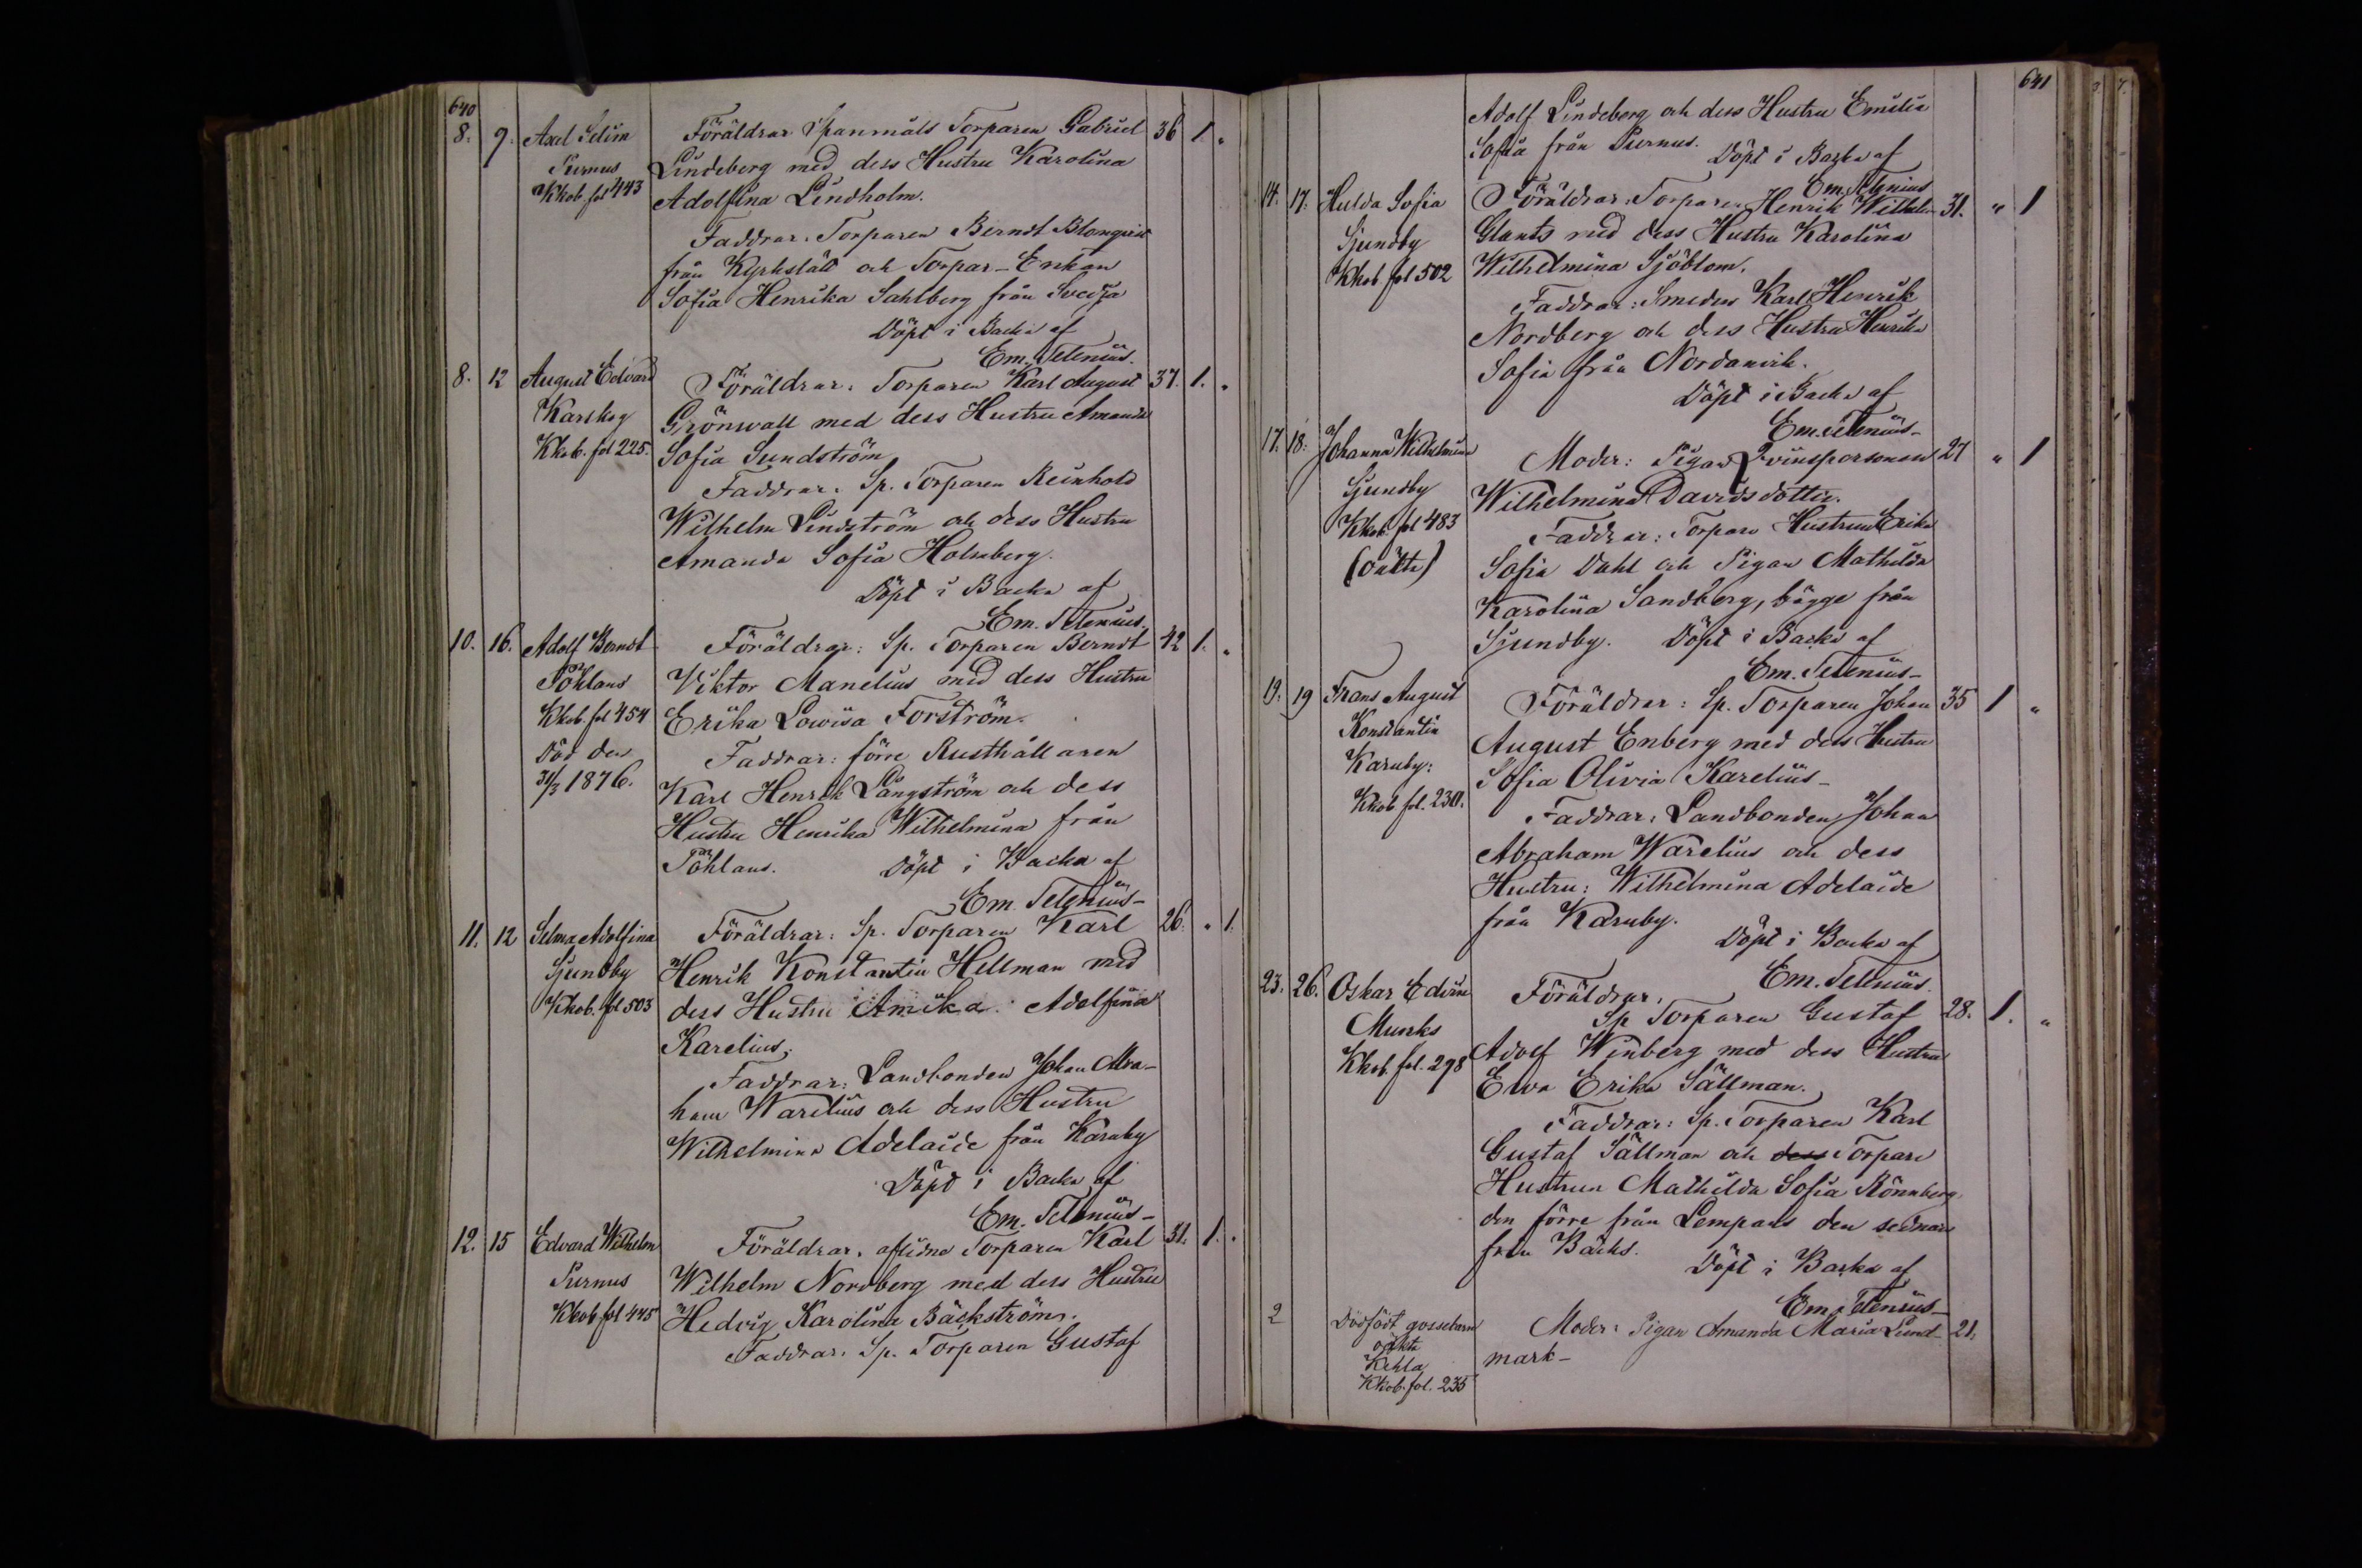 640
8. 9. Axel Selim Föräldrar Spanmåls Torparen Gabriel 36 1. "
Purnus Lindeberg med dess Hustru Karolina
Kkob. fol 443 Adolfina Lindholm.
Faddrar: Torparen Berndt Blomqvist
från Kyrkslätt och Torpar-Enkan
Sofia Henrika Sahlberg från Svedja
Döpt i Backa af
Em. Telenius.
8. 12 August Edvard Föräldrar: Torparen Karl August 37. 1. "
Karskog Grönwall med dess Hustru Amanda
Kkob. fol 225. Sofia Sundström
Faddrar: Sp. Torparen Reinhold
Wilhelm Lindström och dess Hustru
Amanda Sofia Holmberg.
Döpt i Backa af
Em. Telenius.
10. 16. Adolf Berndt Föräldrar: Sp. Torparen Berndt 42 1. "
Påhlans Viktor Manelius med dess Hustru
Kkob. fol 454 Erika Lowisa Forström.
Död den Faddrar: förre Rusthållaren
31/3 1876. Karl Henrik Långström och dess
Hustru Henrika Wilhelmina från
Påhlans. Döpt i Backa af
Em. Telenius-
11. 12 Selma Adolfina Föräldrar: Sp. Torparen Karl 26. " 1.
Sjundby Henrik Konstantin Hellman med
Kkob. fol 503 dess Hustru Amika Adolfina
Karelius,
Faddrar: Landbonden Johan Abra-
ham Warelius och dess Hustru
Wilhelmina Adelaide från Karuby
Döpt i Backa af
Em. Telenius-
12. 15 Edvard Wilhelm Föräldrar. aflidne Torparen Karl 31. 1. "
Purnus Wilhelm Nordberg med dess Hustru
Kkob fol 445 Hedvig Karolina Bäckström.
Faddrar. Sp. Torparen Gustaf
641
Adolf Lindeberg och dess Hustru Emilia
Sofia från Purnus. Döpt i Backa af
Em. Telenius
14. 17. Hulda Sofia Föräldrar: Torparen Henrik Wilhelm 31. " 1
Sjundby Glants med dess Hustru Karolina
Kkob. fol 502 Wilhelmina Sjöblom.
Faddrar: Smeden Karl Henrik
Nordberg och dess Hustru Henrika
Sofia från Nordanvik.
Döpt i Backa af
Em. Telenius-
17. 18. Johanna Wilhelmina Moder: Pigan Qvinspersonen 27 " 1
Sjundby Wilhelmina Davidsdotter.
Kkob. fol 483 Faddrar: Torpare Hustrun Erika
(oäkta) Sofia Dahl och Pigan Mathilda
Karolina Sandberg, bägge från
Sjundby. Döpt i Backa af
Em. Telenius-
19. 19 Frans August Föräldrar: Sp. Torparen Johan 35 1 "
Konstantin August Enberg med dess Hustru
Karuby: Sofia Olivia Karelius-
Kkob. fol. 230. Faddrar: Landbonden Johan
Abraham Warelius och dess
Hustru: Wilhelmina Adelaide
från Karuby. Döpt i Backa af
Em. Telenius.
23. 26. Oskar Edvin Föräldrar.
Munks Sp Torparen Gustaf 28. 1. "
Kkob. fol. 298 Adolf Winberg med dess Hustru
Ewa Erika Sällman.
Faddrar: Sp. Torparen Karl
Gustaf Sällman och dess Torpare
Hustrun Mathilda Sofia Rönnberg,
den förre från Lempans den sednare
från Bäcks. Döpt i Backa af
Em. Telenius-
2 Dödfödt gossebarn Moder: Pigan Amanda Maria Lund- 21.
oäkta mark-
Kehla
Kkob. fol. 235